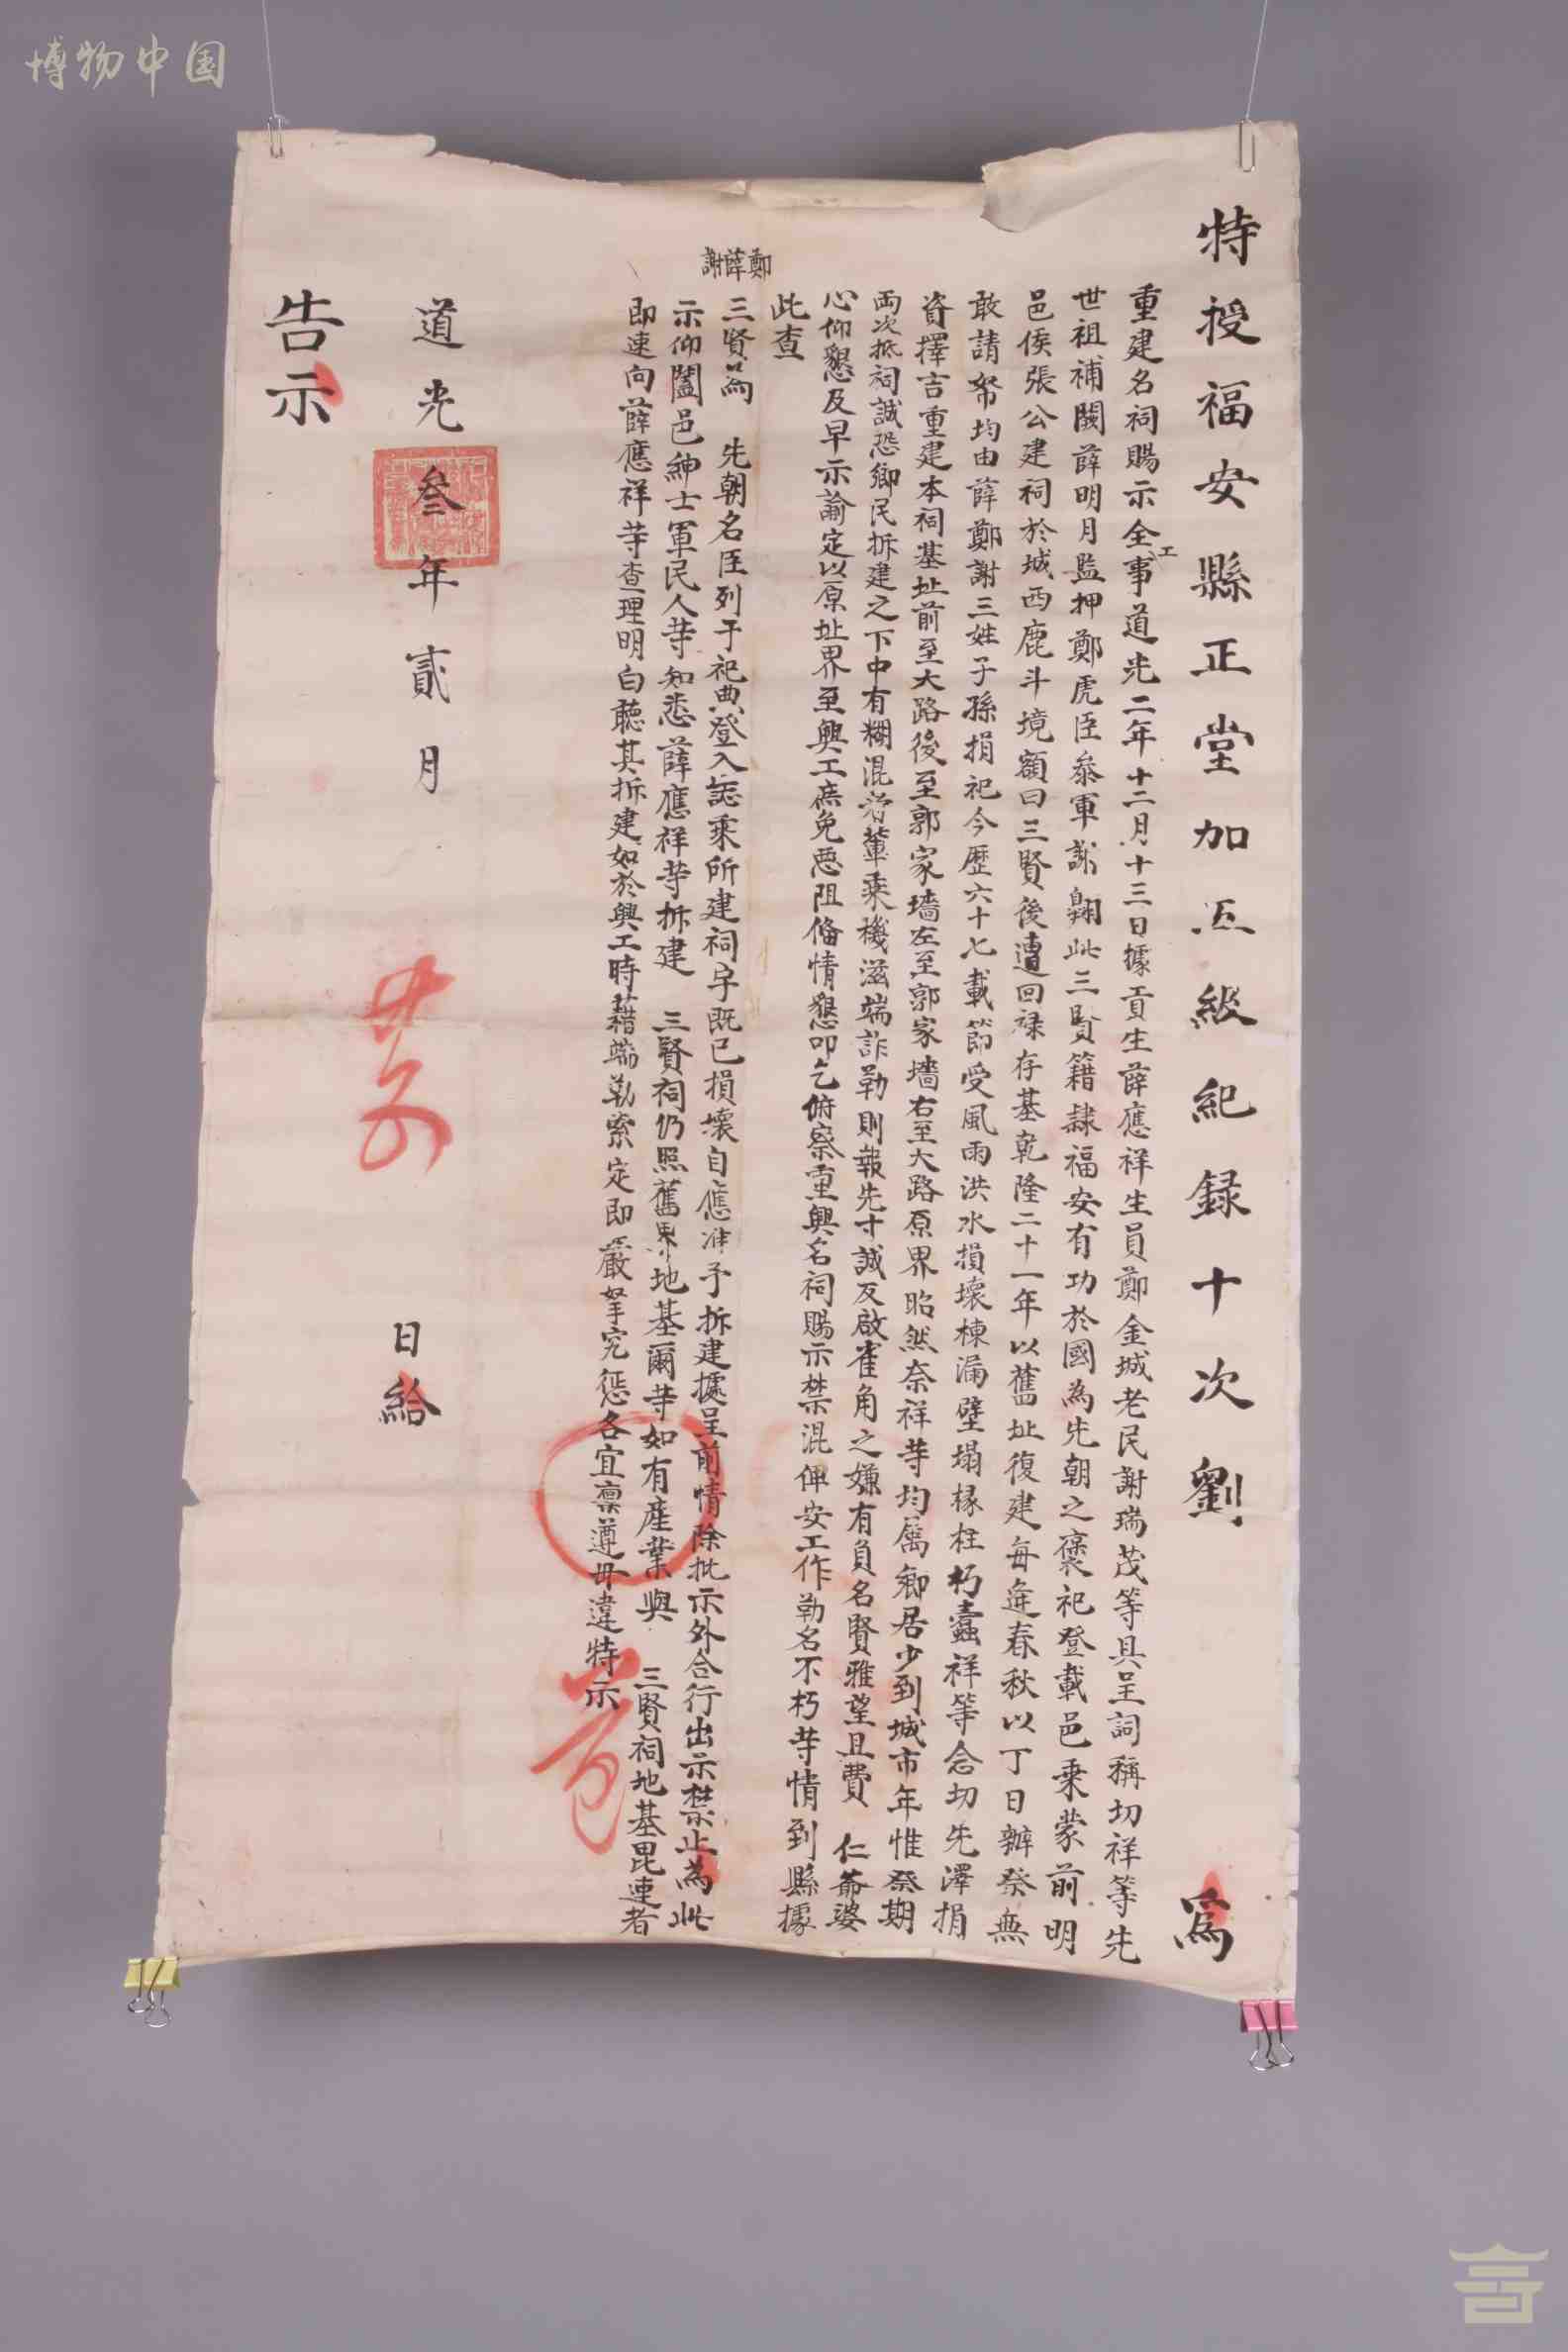 博物中国
特授福安縣正堂加五級紀録十次劉 為
重建名祠賜示全工事道光二年十二月十三日據貢生薛應祥生員鄭金城老民謝瑞茂等具呈詞稱切祥等先
世祖補闕薛明月監押鄭虎臣叅軍謝翱此三賢籍隷福安有功於國為先朝之褒祀登載邑乘蒙前明
邑侯張公建祠於城西鹿斗境額曰三賢後遭回禄存基乾隆二十一年以舊址復建每年春秋以丁日辦祭無
敢請帑均由薛鄭謝三姓子孫捐祀今歴六十七載節受風雨洪水損壞棟漏壁塌椽柱朽蠹祥等念切先澤捐
資擇吉重建本祠基址前至大路後至郭家墻左至郭家墻右至大路原界昭然奈祥䓁均属鄉居少到城市年惟祭期
両次抵祠誠恐鄉民拆建之下中有糊混輩乘機滋端詐勒則報先寸誠反啟雀角之嫌有負名賢雅望且費 仁爺婆
心仰懇及早示諭定以原址界至興工庶免惡阻俻情懇叩乞俯察重興名祠賜示禁混俾安工作勒名不朽䓁情到縣據
此查
鄭薛謝
三賢為 先朝名臣列于祀典登入誌乘所建祠宇既已損壞自應准予拆建據呈前情除批示外合行出示禁止為此
示仰闔邑紳士軍民人䓁知悉薛應祥䓁拆建 三賢祠仍照舊界地基爾䓁如有産業與 三賢祠地基毘連者
即速向薛應祥䓁查理明白聴其拆建如於興工時藉端勒索定即嚴拏究懲各宜凛遵毋違特示
道光叄年貳月 日給
告示